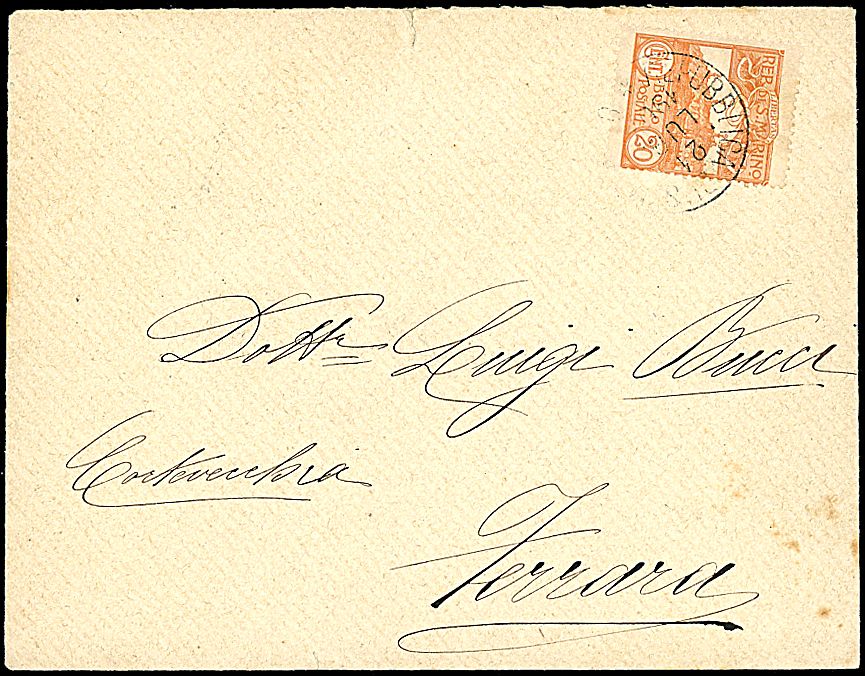 REP. DI S. MARINO
LIBERTAS
CENT. BOLLO POSTALE 20
Dott.r Luigi Bucci
Cortevecchia
Ferrara